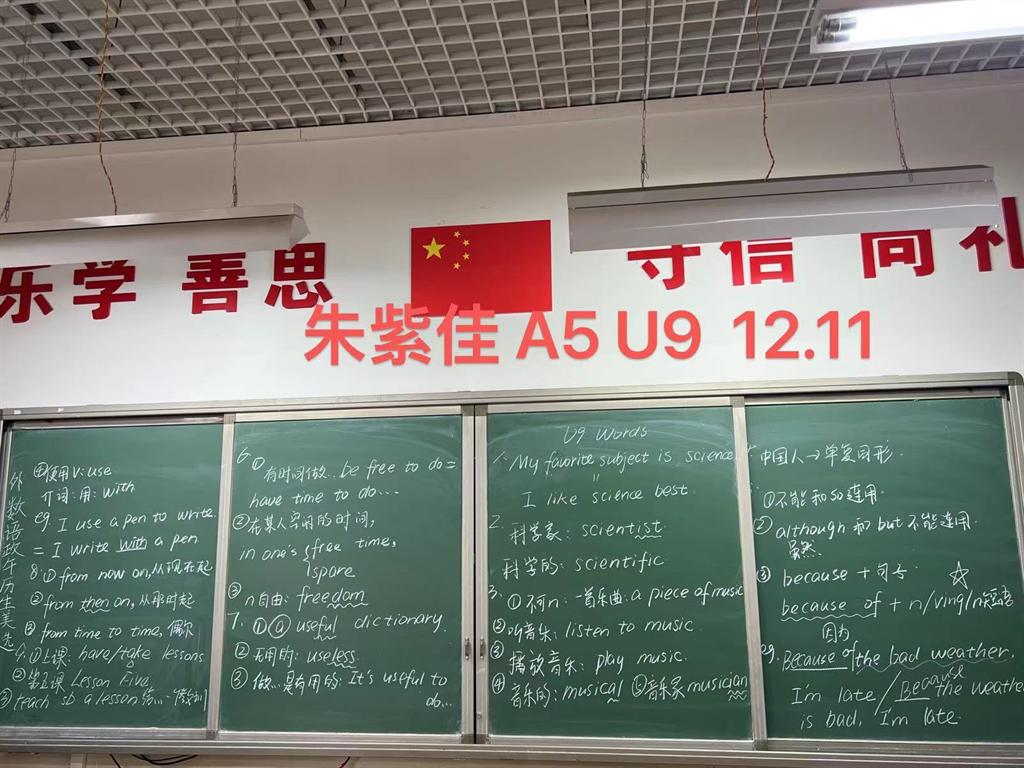 乐学 善思
守信 尚礼
朱紫佳 A5 U9 12.11
外数语政午历生美选
④使用V: use
介词: 用: with
eg I use a pen to write.
= I write with a pen
8. ① from now on, 从现在起
② from then on, 从那时起
③ from time to time, 偶尔
9. ①上课: have/take lessons
②第五课 Lesson Five
③ teach sb a lesson 给…一个教训
6. ① 有时间做.. be free to do =
have time to do...
②在某人空闲的时间,
in one's free time,
spare
③ n自由: freedom
7. ① a useful dictionary
② 无用的: useless.
③ 做...是有用的: It's useful to
do...
U9 Words
1. My favorite subject is science
=
I like science best.
2. 科学家: scientist
科学的: scientific
3. ①不可n: 一首乐曲: a piece of music
②听音乐: listen to music
③播放音乐: play music.
④音乐的: musical ⑤音乐家 musician
中国人→单复同形.
①不能和so连用.
② although 和 but 不能连用.
虽然
③ because + 句子 ☆
because of + n/ving/n短语
因为
eg. Because of the bad weather,
I'm late / Because the weather
is bad, I'm late.